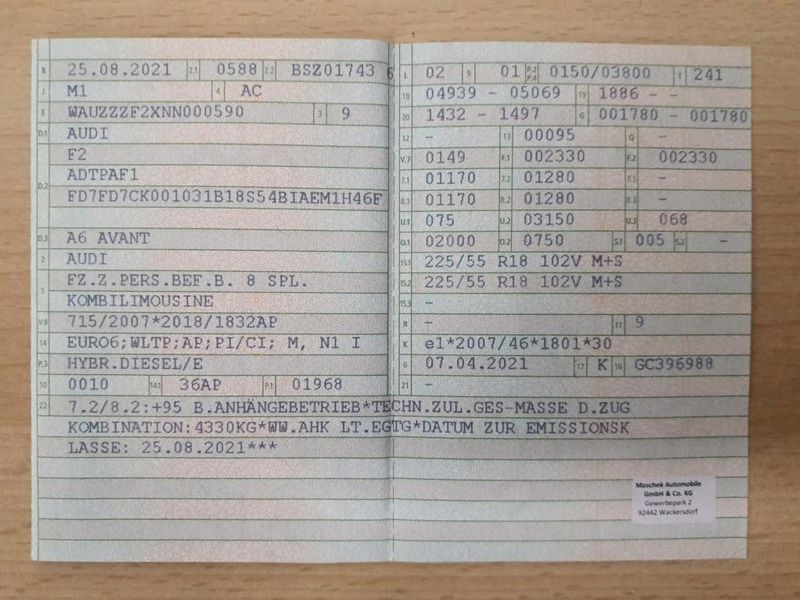 B 25.08.2021 2.1 0588 2.2 BSZ01743 6
J M1 4 AC
E WAUZZZF2XNN000590 3 9
D.1 AUDI
F2
D.2 ADTPAF1
FD7FD7CK001031B18S54BIAEM1H46F
D.3 A6 AVANT
2 AUDI
5 FZ.Z.PERS.BEF.B. 8 SPL.
KOMBILIMOUSINE
V.9 715/2007*2018/1832AP
14 EURO6;WLTP;AP;PI/CI; M, N1 I
P.3 HYBR.DIESEL/E
10 0010 14.1 36AP P.1 01968
L 02 9 01 P.2 P.4 0150/03800 T 241
18 04939 - 05069 19 1886 - -
20 1432 - 1497 G 001780 - 001780
12 - 13 00095 Q -
V.7 0149 F.1 002330 F.2 002330
7.1 01170 7.2 01280 7.3 -
8.1 01170 8.2 01280 8.3 -
U.1 075 U.2 03150 U.3 068
O.1 02000 O.2 0750 S.1 005 S.2 -
15.1 225/55 R18 102V M+S
15.2 225/55 R18 102V M+S
15.3 -
R - 11 9
K e1*2007/46*1801*30
6 07.04.2021 17 K 16 GC396988
21 -
22 7.2/8.2:+95 B.ANHÄNGEBETRIEB*TECHN.ZUL.GES-MASSE D.ZUG
KOMBINATION:4330KG*WW.AHK LT.EGTG*DATUM ZUR EMISSIONSK
LASSE: 25.08.2021***
Maschek Automobile
GmbH & Co. KG
Gewerbepark 2
92442 Wackersdorf